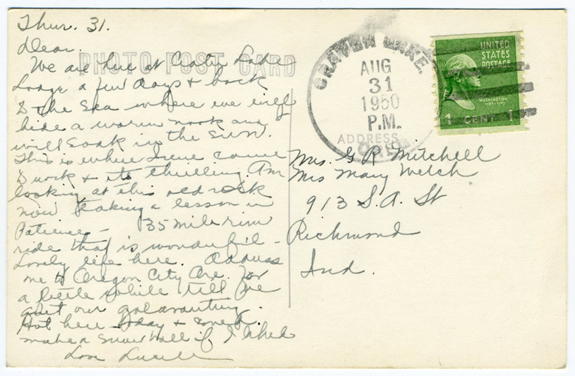 Thur. 31.
Dear
PHOTO POST CARD
We are here at Crater Lake
Lodge a few days & back
to the Sea where we will
hide a warm nook and
will soak in the sun.
This is where Irene came
to work & its thrilling. Am
looking at this old rock
now & taking a lesson in
Patience - 35 mile rim
ride that is wonderful -
Lovely life here. Address
me to Oregon City Ore. for
a little while till we
quit our galavanting.
Hot here today & could
make a snowball if I liked
Love Lucile
CRATER LAKE.
AUG
31
1950
P.M.
OREG.
ADDRESS
UNITED
STATES
POSTAGE
WASHINGTON
1 CENT 1
Mrs. G R Mitchell
Mrs Mary Welch
913 S. A. St
Richmond
Ind.